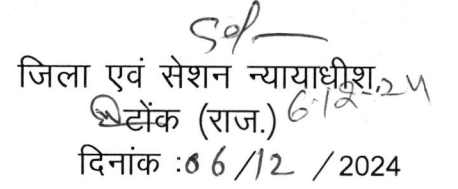 Sd/-
जिला एवं सेशन न्यायाधीश,
टोंक (राज.) 6.12.24
दिनांक :06/12 /2024